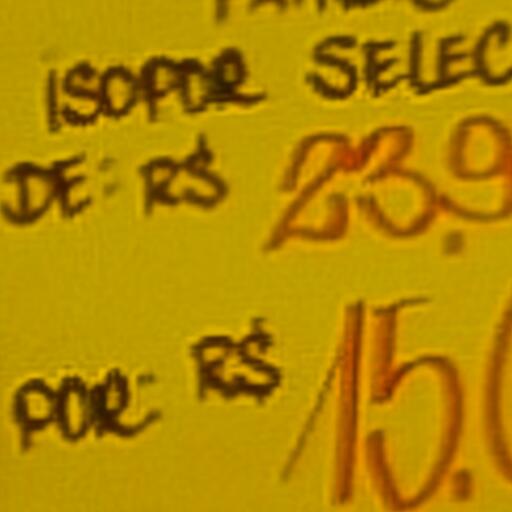 ISOPOR SELEC
DE: R$ 23.9
POR: R$ 15.0